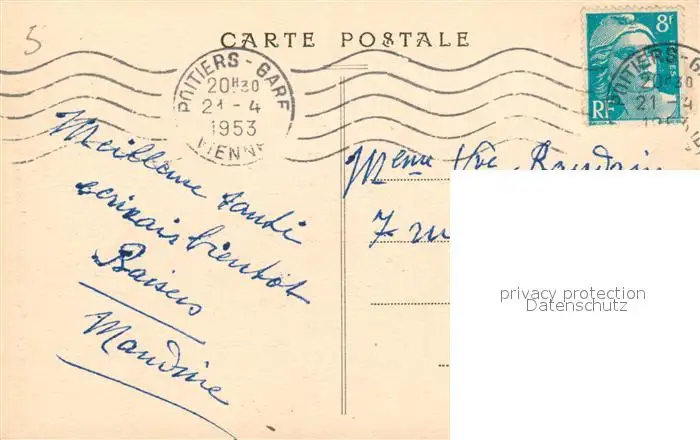 5
CARTE POSTALE
8F
RF
POITIERS-GARE
20H30
21-4
1953
VIENNE
POITIERS-GA
20H30
21-4
Meilleure santé
écrirais bientôt
Baisers
Mme Vve
7 ru
privacy protection
Datenschutz